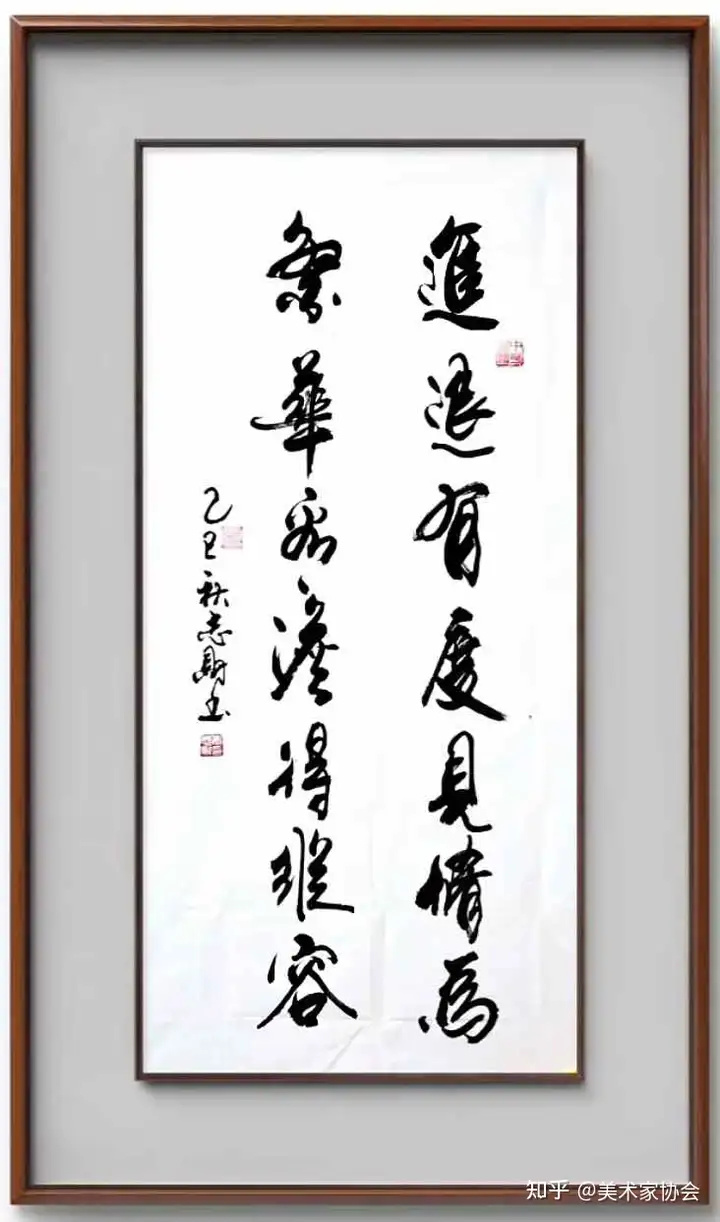 進退有度見情為
繁華看澹得縱容
乙巳秋志財書
知乎 @美术家协会